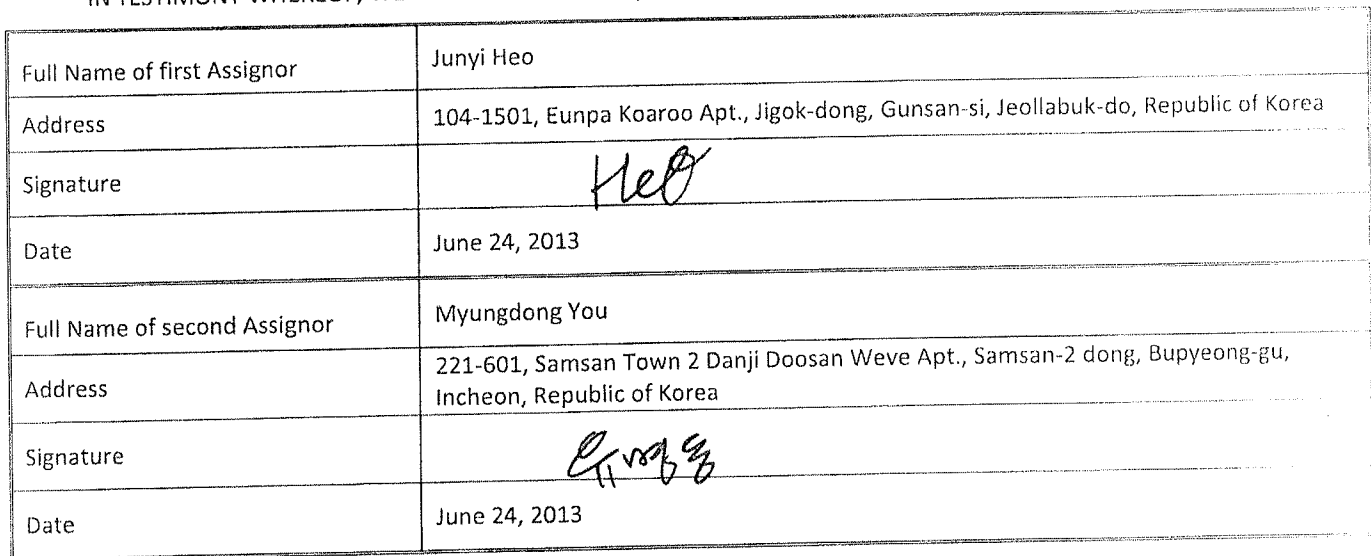 IN TESTIMONY WHEREOF,
Full Name of first Assignor Junyi Heo
Address 104-1501, Eunpa Koaroo Apt., Jigok-dong, Gunsan-si, Jeollabuk-do, Republic of Korea
Signature Heo
Date June 24, 2013
Full Name of second Assignor Myungdong You
Address 221-601, Samsan Town 2 Danji Doosan Weve Apt., Samsan-2 dong, Bupyeong-gu,
Incheon, Republic of Korea
Signature 유명동
Date June 24, 2013